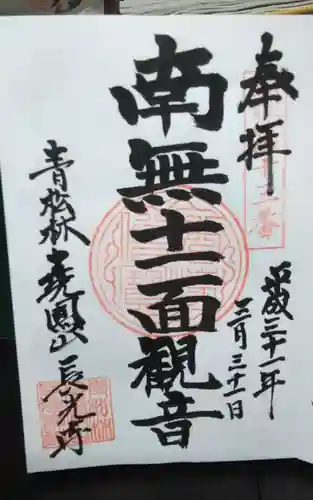 奉拝
十二番
平成三十一年
三月三十一日
南無十一面観音
鳳山 長光寺